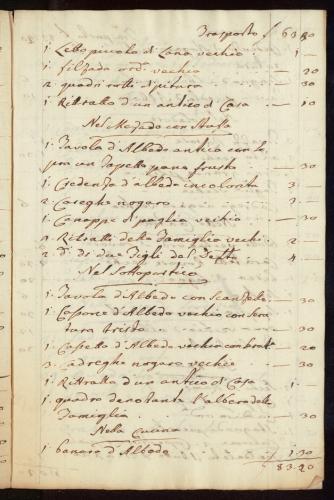 Trasporto £ 60.20
1. Letto piccolo di Lana vecchio 1 —
1. filzada ord. vecchia — 20
2 quadri rotti di pitura — 30
1. Rittratto d'un antico di Casa — 10
Nel Mezado con Stuffa
1. Tavola d'Albedo antico con so
pra un Tapetto pano frusto — 30
1. Credenza d'albedo incolorita 3 —
2 Careghe nogara 3 —
1. Canappè di paglia vechio — 30
2 Ritratti della Famiglia vechi 2
2. d.i di due Figli del Deffto 4 —
Nel Sottoportico
1. Tavola d'Albedo con — 30
1. Cassone d'Albedo vechio con Sera
tura trista — 30
1. Cassetta d'Albedo vechia con — 20
3. Cadreghe nogara vechie — 30
1. Rittratto d'un antico di Casa 1 —
1. quadro denotante l'albero della
Famiglia — 30
Nella Cucina
1. banco d'Albedo 1.30
£ 83.20